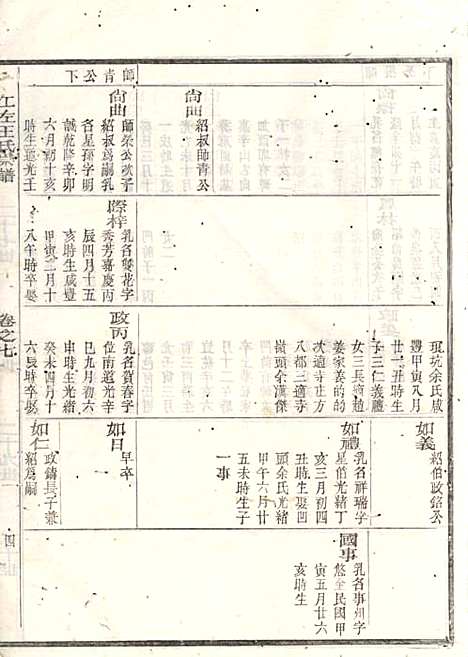 師青公下
尙曲
紹叔師青公
尙曲
師榮公次子
紹叔爲嗣乳
名星孫字明
誠乾隆辛卯
六月初十亥
時生道光壬
際梓
乳名雙花字
秀芳嘉慶丙
辰四月十五
亥時生咸豐
甲寅三月十
八午時卒娶
現坑余氏咸
豐甲寅八月
廿一丑時生
子三仁義禮
女三長適趙
姜家姜的的
次適寺正方
八都三適寺
嶺頭余漢傑
政丙
乳名賀春字
位南道光辛
巳九月初六
申時生光緒
癸未四月十
六辰時卒娶
如義
紹伯政銘公
如禮
乳名祥瑞字
星伯光緒丁
亥三月初四
丑時生娶凹
頭余氏光緒
甲午六月廿
五未時生子
一事
如日
早卒
如仁
政鑄長子兼
紹爲嗣
國事
乳名事州字
悠全民國甲
寅五月廿六
亥時生
江左王氏宗譜
卷之七
四